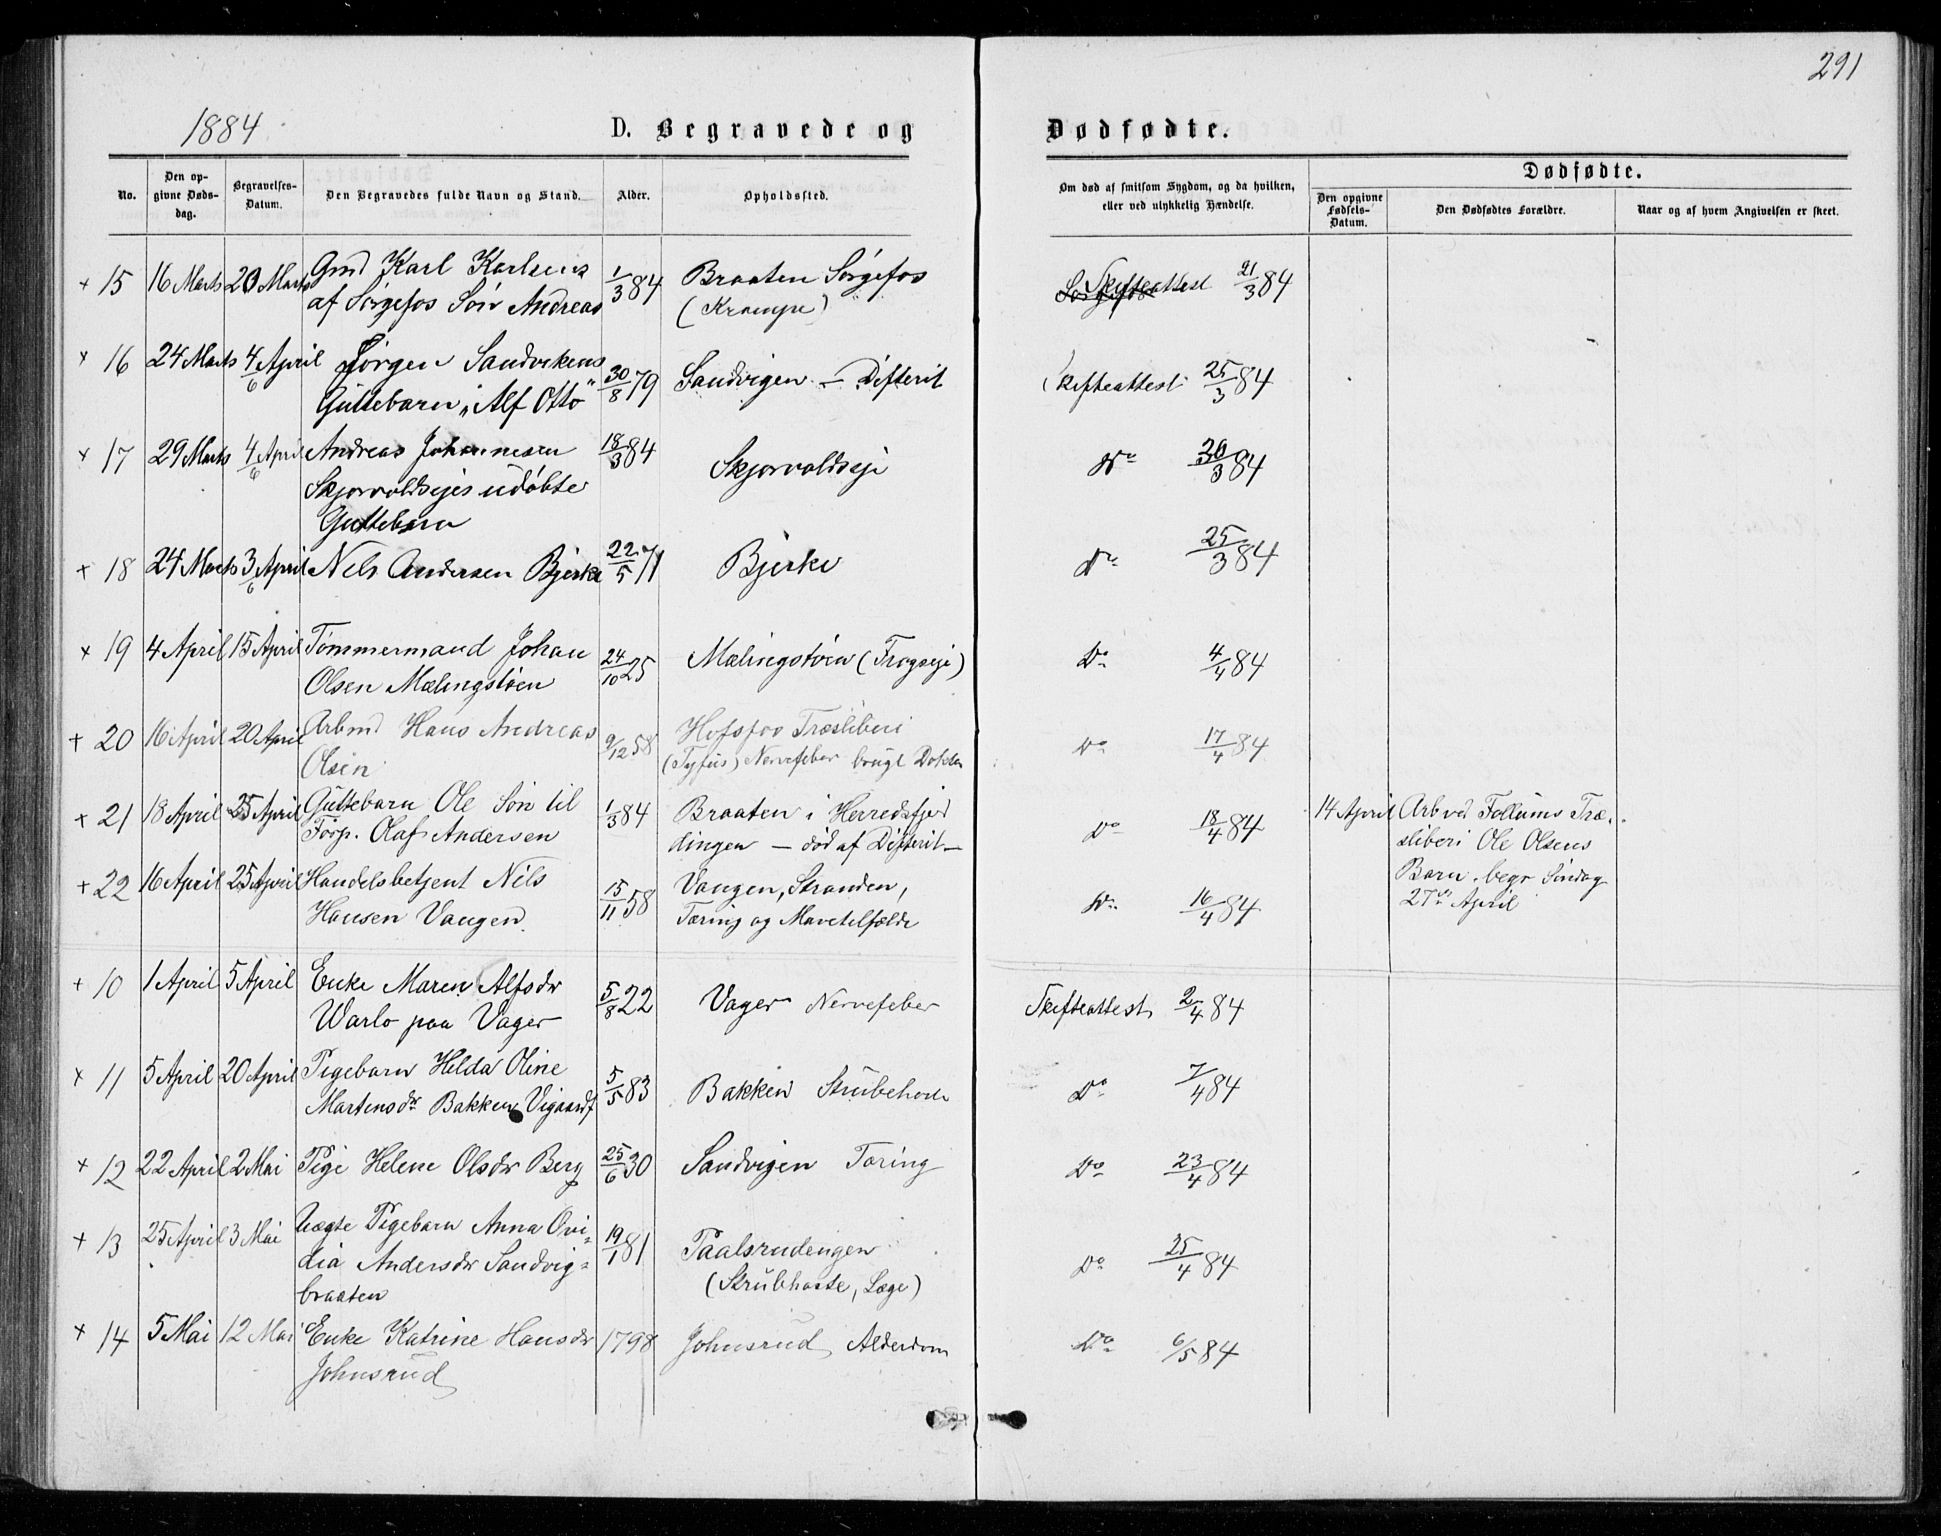 291
1884
D. Begravede og Dødfødte.
No.
Den op-
givne Døds-
dag.
Begravelses-
Datum.
Den Begravedes fulde Navn og Stand.
Alder.
Opholdssted.
Om død af smitsom Sygdom, og da hvilken,
eller ved ulykkelig Hændelse.
Dødfødte.
Den opgivne
Fødsels-
Datum.
Den Dødfødtes Forældre.
Naar og af hvem Angivelsen er skeet.
+ 15 16 Marts 20 Marts Gmd Karl Karlsens 1/3 84 Braaten Sørgefos Skifteattest 21/3 84
af Sørgefos Søn Andreas (Krampe)
+ 16 24 Marts 4/6 April Jørgen Sandvikens 30/8 79 Sandvigen — Difterit Skifteattest 25/3 84
Guttebarn "Alf Otto"
+ 17 29 Marts 4/6 April Andreas Johannesen 18/3 84 Skjorvoldseje Do 30/3 84
Skjorvoldsejes udøbte
Guttebarn
+ 18 24 Marts 3/6 April Nels Andersen Bjerke 22/5 71 Bjerke Do 25/3 84
+ 19 4 April 15 April Tømmermand Johan 24/10 25 Mælingstøen (Frogseje) Do 4/4 84
Olsen Mælingstøen
+ 20 16 April 20 April Arbmd Hans Andreas 9/12 58 Hofsfos Træsliberi Do 17/4 84
Olsen (Tyfus) Nervefeber brugt Doktor
+ 21 18 April 25 April Guttebarn Ole Søn til 1/3 84 Braaten i Herredsfjer Do 18/4 84 14 April Arb ved Follums Træ-
Forp. Olaf Andersen dingen — død af Difterit — sliberi Ole Olsens
Barn begr Søndag
27de April
+ 22 16 April 25 April Handelsbetjent Nils 15/11 58 Vangen, Stranden, Do 16/4 84
Hansen Vangen Tæring og Mavetilfælde
+ 10 1 April 5 April Enke Maren Alfsdr 5/8 22 Vager Nervefeber Skifteattest 2/4 84
Warlo paa Vager
+ 11 5 April 20 April Pigebarn Helda Oline 5/5 83 Bakken Strubehoste Do 7/4 84
Martensdr Bakken
+ 12 22 April 2 Mai Pige Helene Olsdr Berg 25/6 30 Sandvigen Tæring Do 23/4 84
+ 13 25 April 3 Mai Uægte Pigebarn Anna Ovi- 19/1 81 Paalsrudengen Do 25/4 84
dia Andersdr Sandvig- (Strubhoste, Læge)
braaten
+ 14 5 Mai 12 Mai Enke Katrine Hansdr 1798 Johnsrud Alderdom Do 6/5 84
Johnsrud